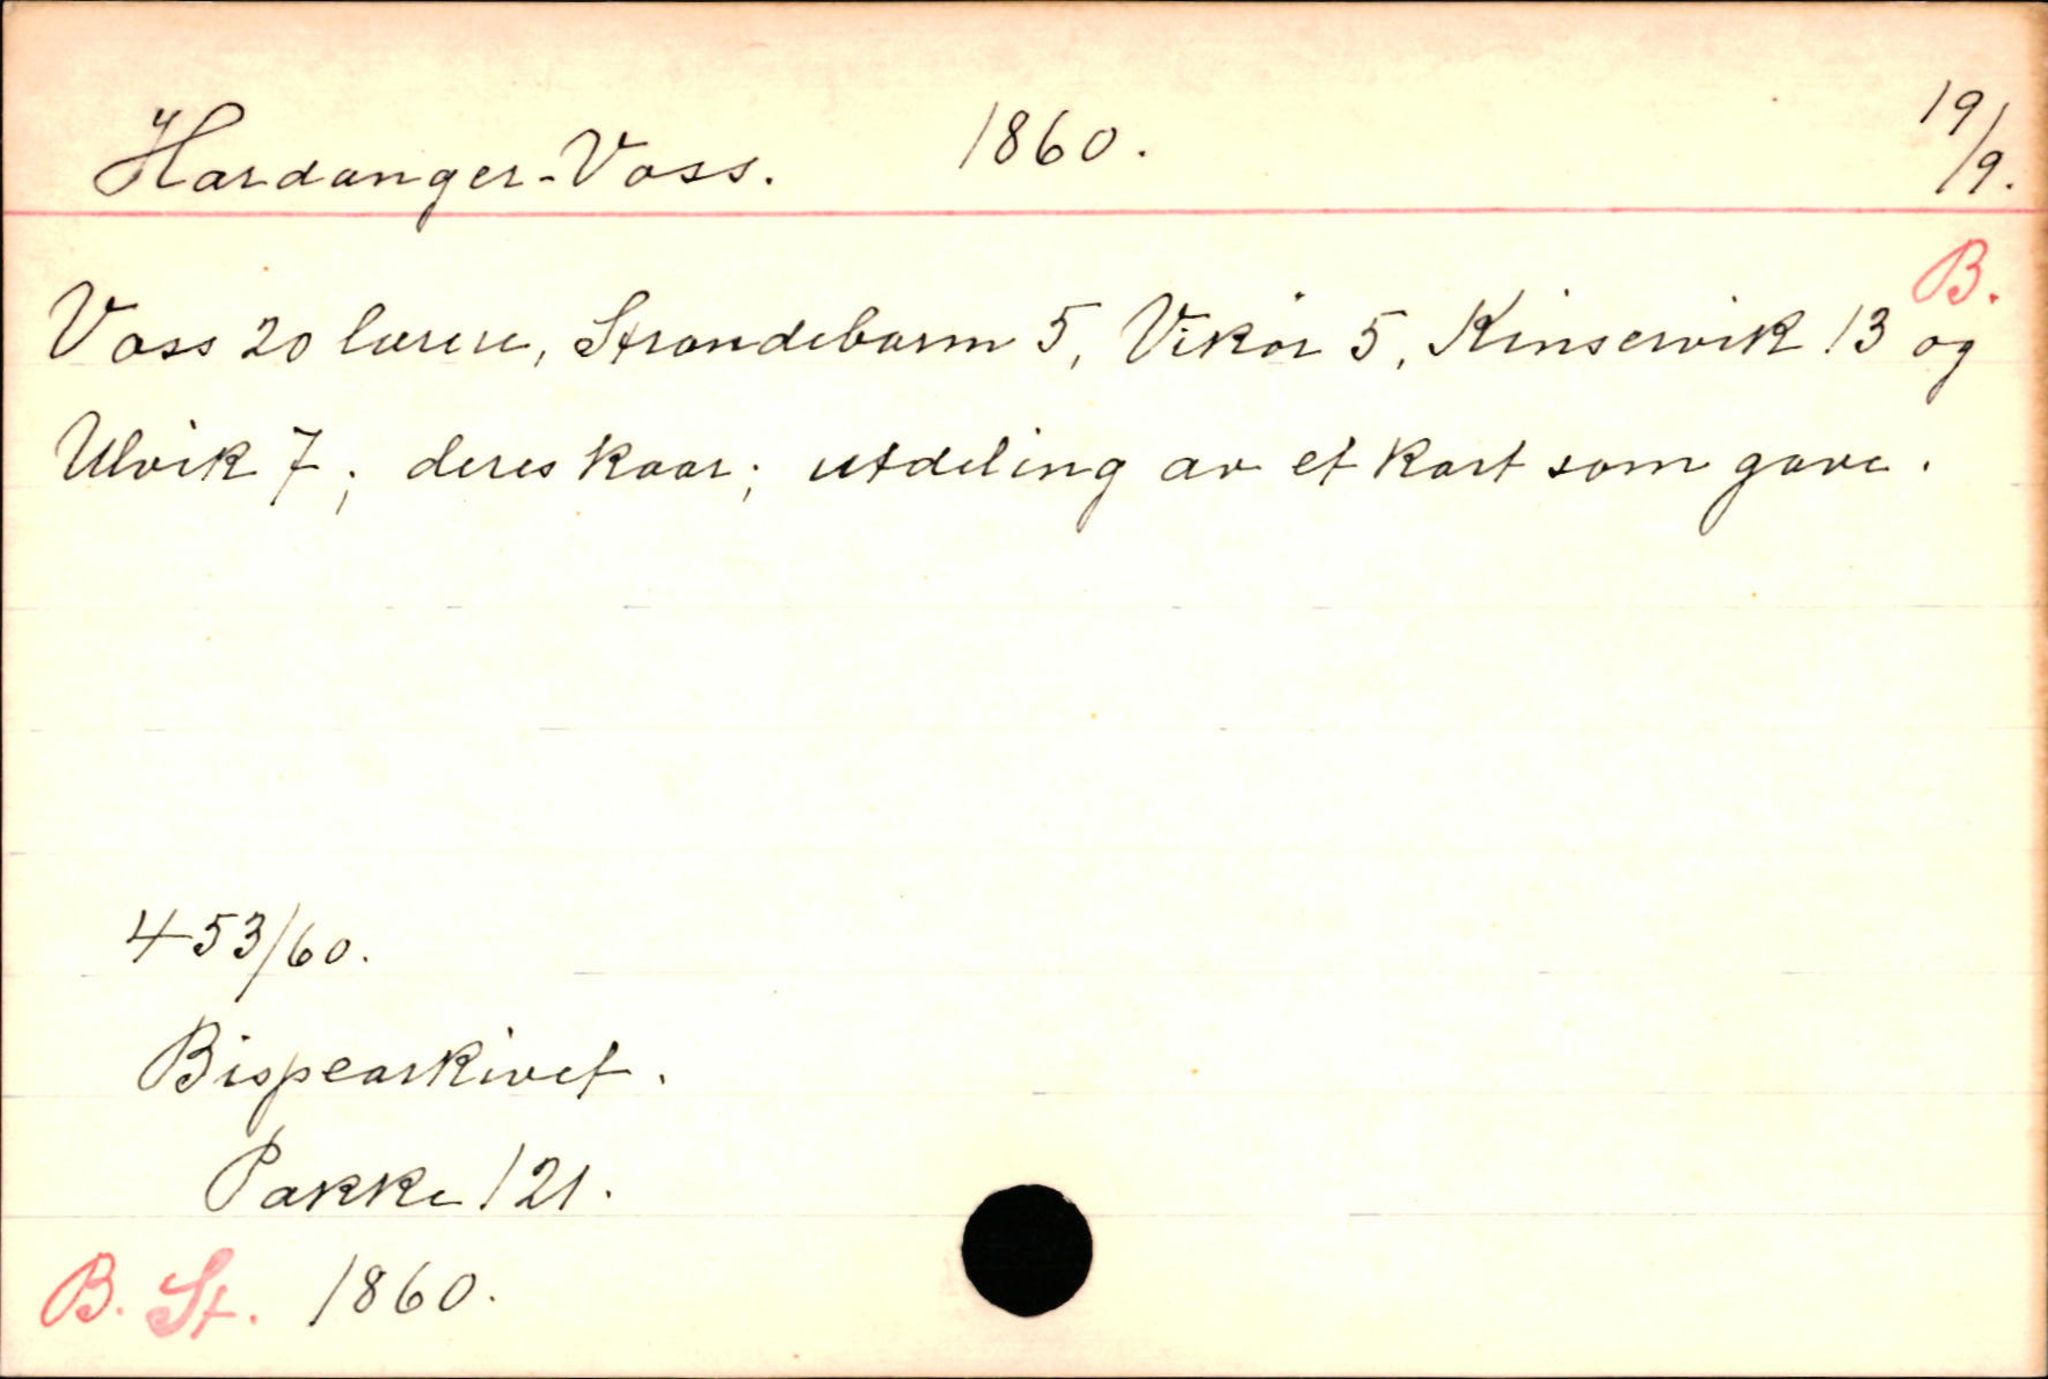 Hardanger-Voss. 1860. 19/9.
B.
Voss 20 lærere, Strandebarm 5, Vikør 5, Kinservik 13 og
Ulvik 7; deres kaar; utdeling av et kart som gave.
453/60.
Bispearkivet.
Pakke 121.
B. St. 1860.